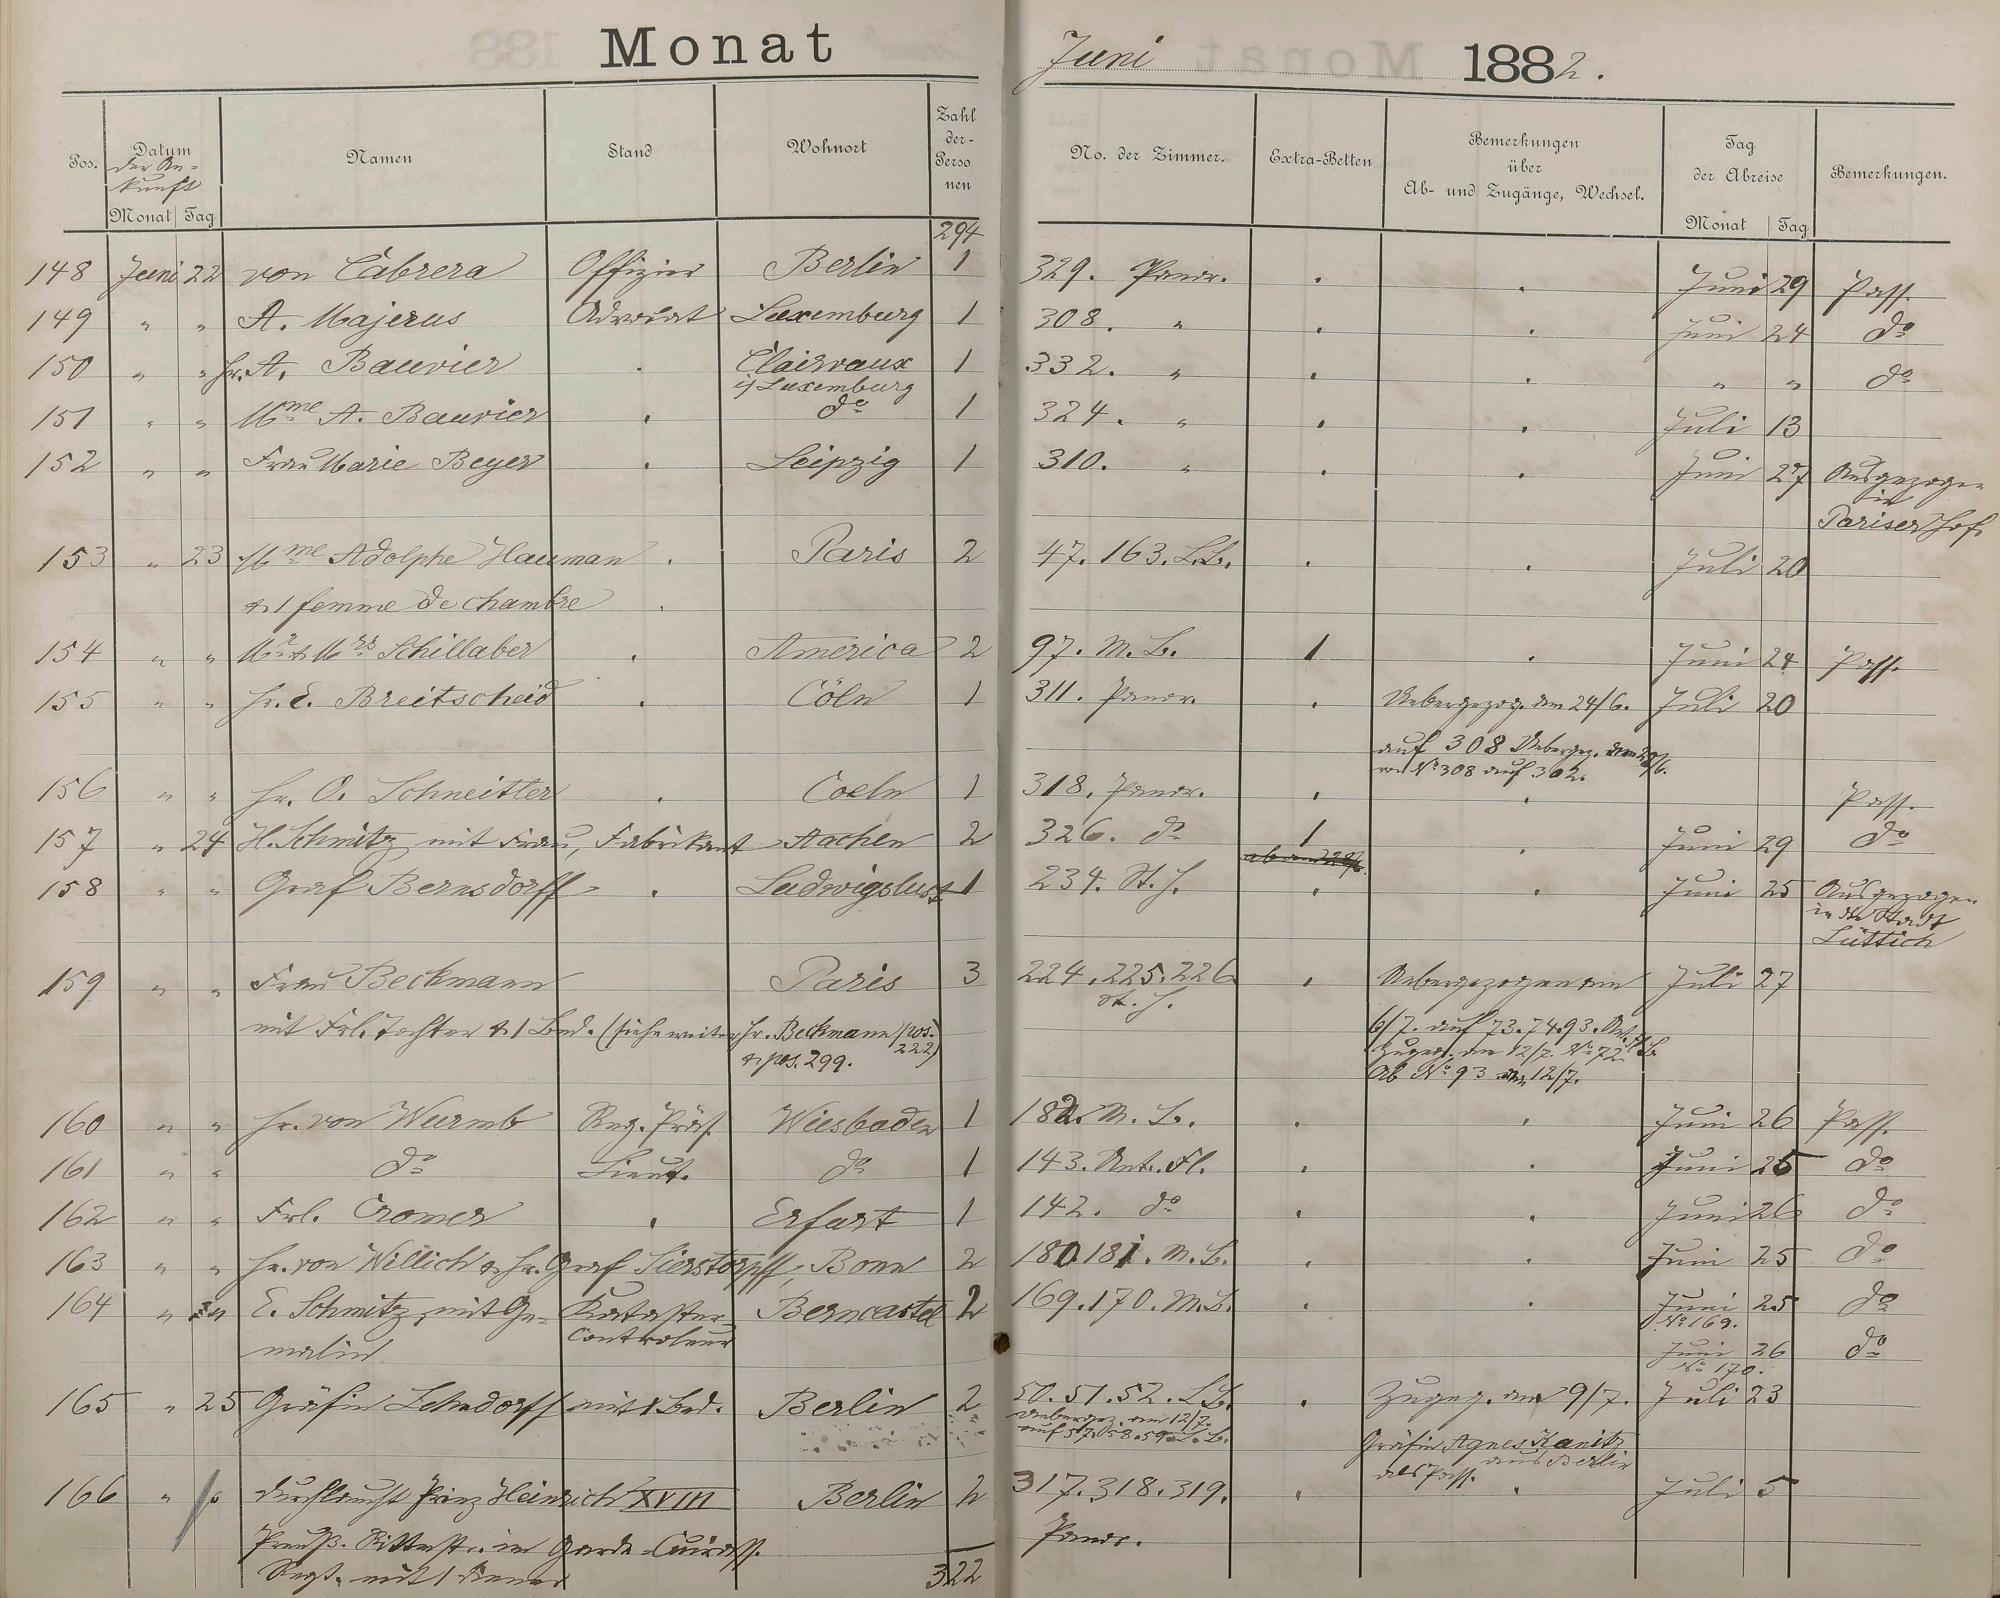 Monat
Juni 1882.
Pos. Datum der An= kunft Monat Tag Namen Stand Wohnort Zahl der- Perso nen
No. der Zimmer. Extra-Betten Bemerkungen über Ab- und Zugänge, Wechsel. Tag der Abreise Monat Tag Bemerkungen.
294
148 Juni 22 von Cabrera Offizier Berlin 1 329. Panor. Juni 29 Pass.
149 " " A. Majerus Advocat Luxemburg 1 308. " Juni 24 do
150 " " Hr. A. Bauvier Clairvaux 1 332. " " " do
i/ Luxemburg
151 " " Mme A. Bauvier do 1 324. " Juli 13
152 " " Frau Marie Beyer Leipzig 1 310. " Juni 27 Ausgezogen
in
Pariser Hof.
153 " 23 Mme Adolphe Hauman Paris 2 47. 163. L.B. Juli 20
& 1 femme de chambre
154 " " Mr & Mrs Schillaber America 2 97. M.B. 1 Juni 24 Pass.
155 " " Hr. E. Breitscheid Cöln 1 311. Panor. Uebergezog. am 24/6. Juli 20
auf 308 Uebergez. am 29/6.
von No 308 auf 302.
156 " " Hr. O. Schneitler Coeln 1 318. Panor. Pass.
157 " 24 H. Schmitz, mit Frau, Fabrikant Aachen 2 326. do 1 Juni 29 do
158 " " Graf Bernsdorff Ludwigslust 1 234. St. H. Juni 25 Ausgezogen
in die Stadt
Lüttich
159 " " Frau Beckmann Paris 3 224. 225. 226. Uebergezogen am Juli 27
St. H.
mit Frl. Tochter & 1 Bed. (siehe weiter Hr. Beckmann pos. 222) 6/7. auf 73. 74. 93.
& pos. 299. Zugeg. am 12/7. No 72.
Ab No 93 am 12/7.
160 " " Hr. von Wurmb Reg. Präs. Wiesbaden 1 182. M. B. Juni 26 Pass.
161 " " do Lieut. do 1 143. Unt. Fl. Juni 25 do
162 " " Frl. Cromer Erfurt 1 142. do Juni 26 do
163 " " Hr. von Willich & Hr. Graf Sierstorpff, Bonn 2 180. 181. M. B. Juni 25 do
164 " " E. Schmitz, mit Ge= Kataster= Berncastel 2 169. 170. M.B. Juni 25 do
malin Controleur No 169.
Juni 26 do
No 170.
165 " 25 Gräfin Lehndorff mit 1 Bed. Berlin 2 50. 51. 52. L.B. Zugeg. am 9/7. Juli 23
Uebergez. am 12/7.
auf 57. 58. 59. L. B. Gräfin Agnes Kanitz
aus Berlin
als Pass.
166 " " Durchlaucht Prinz Heinrich XVIII Berlin 2 317. 318. 319. Juli 5
Preuß. Rittmstr. im Garde-Cuirass. Panor.
Regt. mit 1 Diener 322